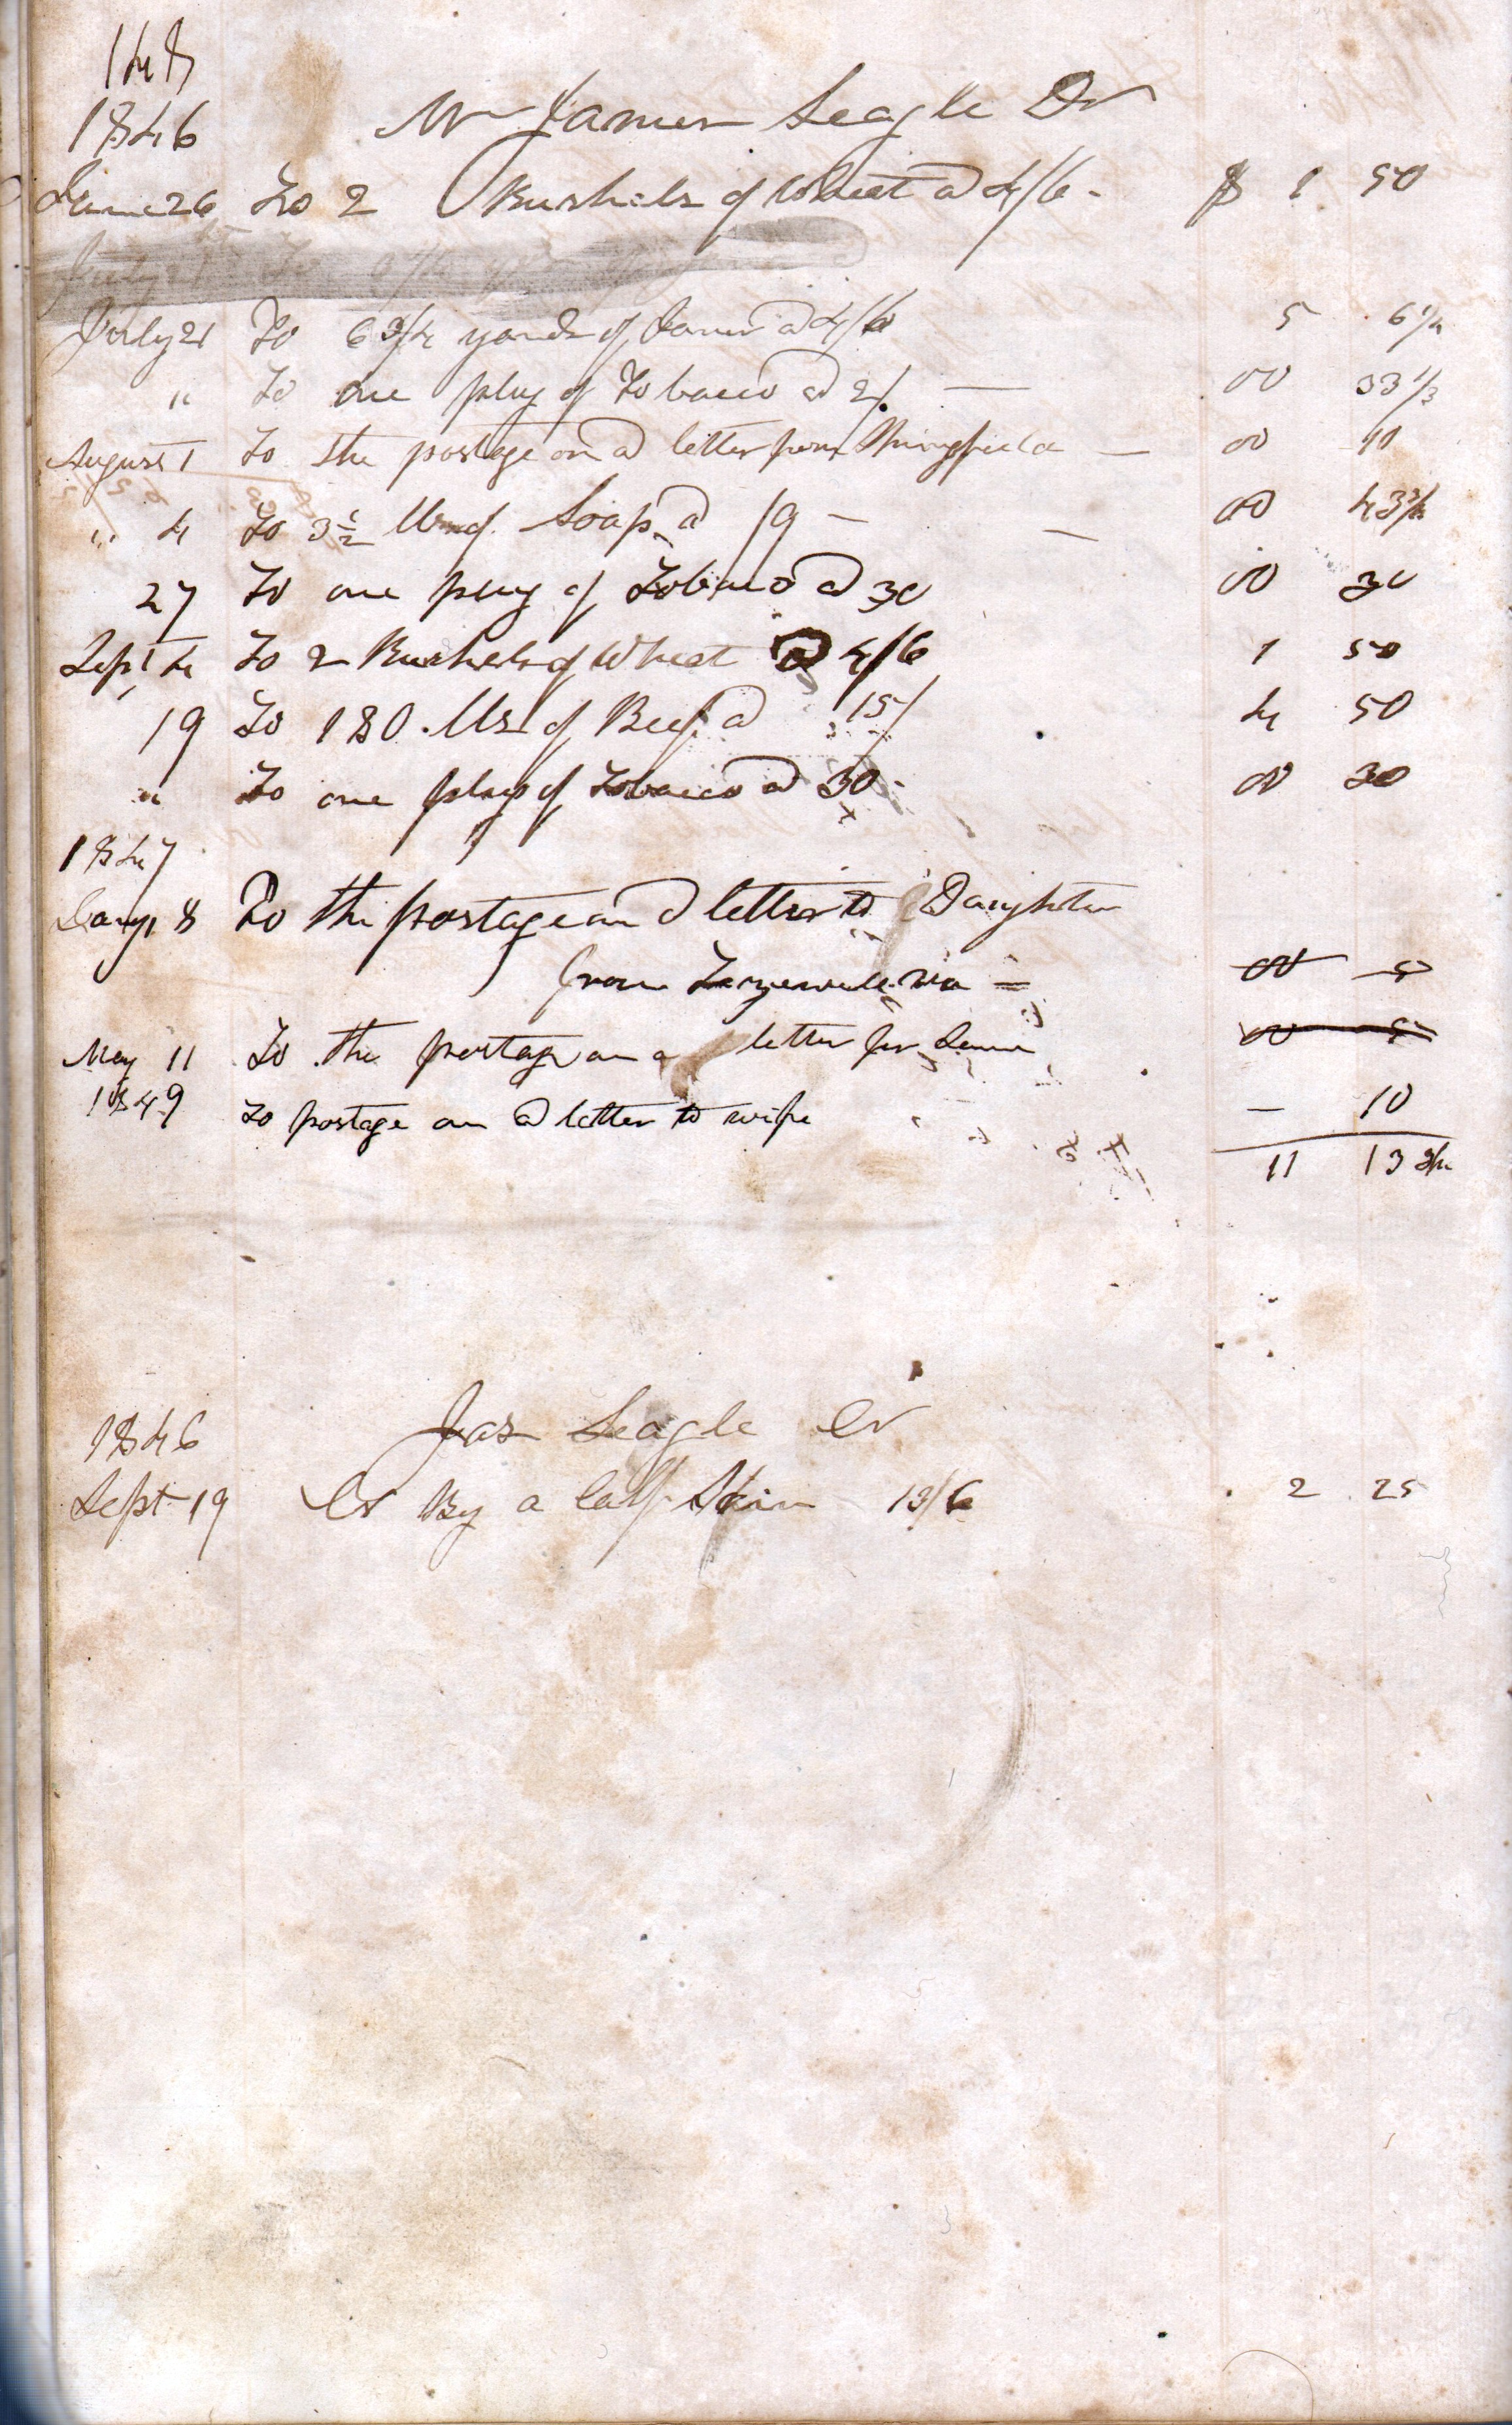 148
1846 Mr James Seagle Dr
June 26 To 2 Bushels of Wheat a 4/6 - $ 1 50
July 21 To 6 3/4 yards of Janes a 4/6 5 6 1/4
" To one plug of Tobacco a 2/. — 00 33 1/3
August 1 To the postage on a letter from Springfield — 00 10
" 4 To 3 1/2 lbs of Soap a /9 — — 00 43 3/4
27 To one plug of Tobacco a 30 00 30
Sept 4 To 2 Bushels of Wheat a 4/6 1 50
19 To 180 lbs of Beef a 15/ 4 50
" To one plug of Tobacco a 30 - 00 30
1847
Jany 8 To the postage on a letter to Daughter
from Tazewell Va = 00 5
May 11 To the postage on a letter for Same 00 5
1849 to postage on a letter to wife — 10
11 13 3/4
1846 Jas Seagle Cr
Sept 19 Cr By a Calf Skin 13/6 2 25